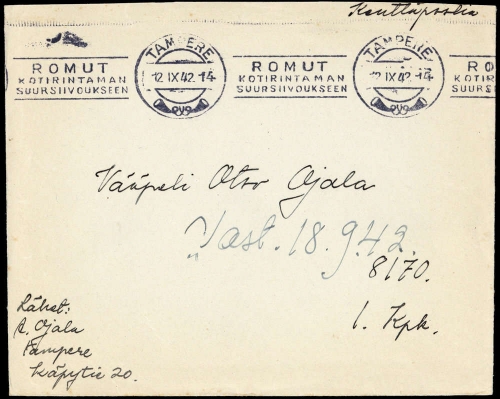 Kenttäpostia
TAMPERE
12.IX.42.14
ROMUT
KOTIRINTAMAN
SUURSIIVOUKSEEN
TAMPERE
12.IX.42.14
RO
KOTIRI
SUURSII
Vääpeli Otso Ojala
Vast. 18.9.42.
8170.
1. Kpk.
Lähet:
A. Ojala
Tampere
Käpytie 20.
ROMUT
KOTIRINTAMAN
SUURSIIVOUKSEEN